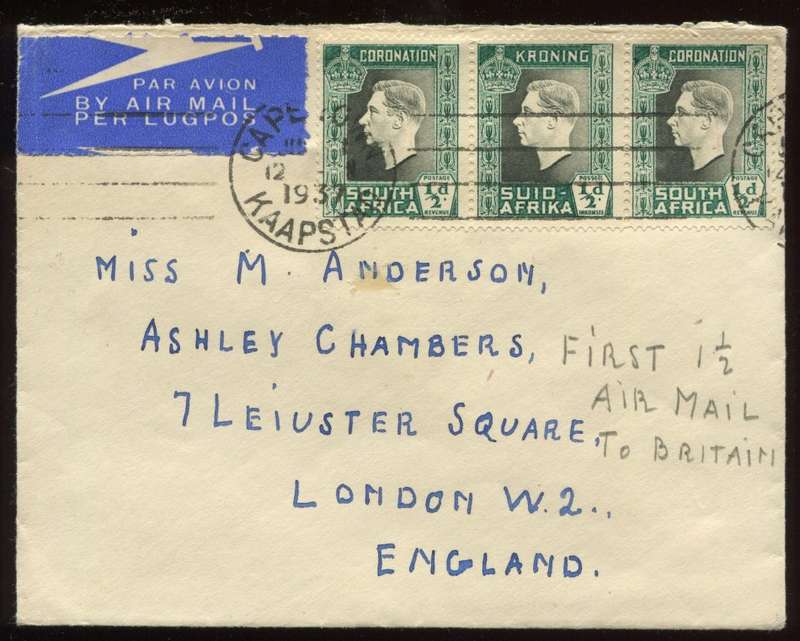 PAR AVION
BY AIR MAIL
PER LUGPOS
CORONATION
SOUTH AFRICA
POSTAGE
½d
REVENUE
KRONING
SUID-AFRIKA
POSSEEL
½d
INKOMSTE
CORONATION
SOUTH AFRICA
POSTAGE
½d
REVENUE
12
1937
KAAPST
MISS M. ANDERSON,
ASHLEY CHAMBERS,
7 LEIUSTER SQUARE,
LONDON W.2.,
ENGLAND.
FIRST 1½
AIR MAIL
TO BRITAIN